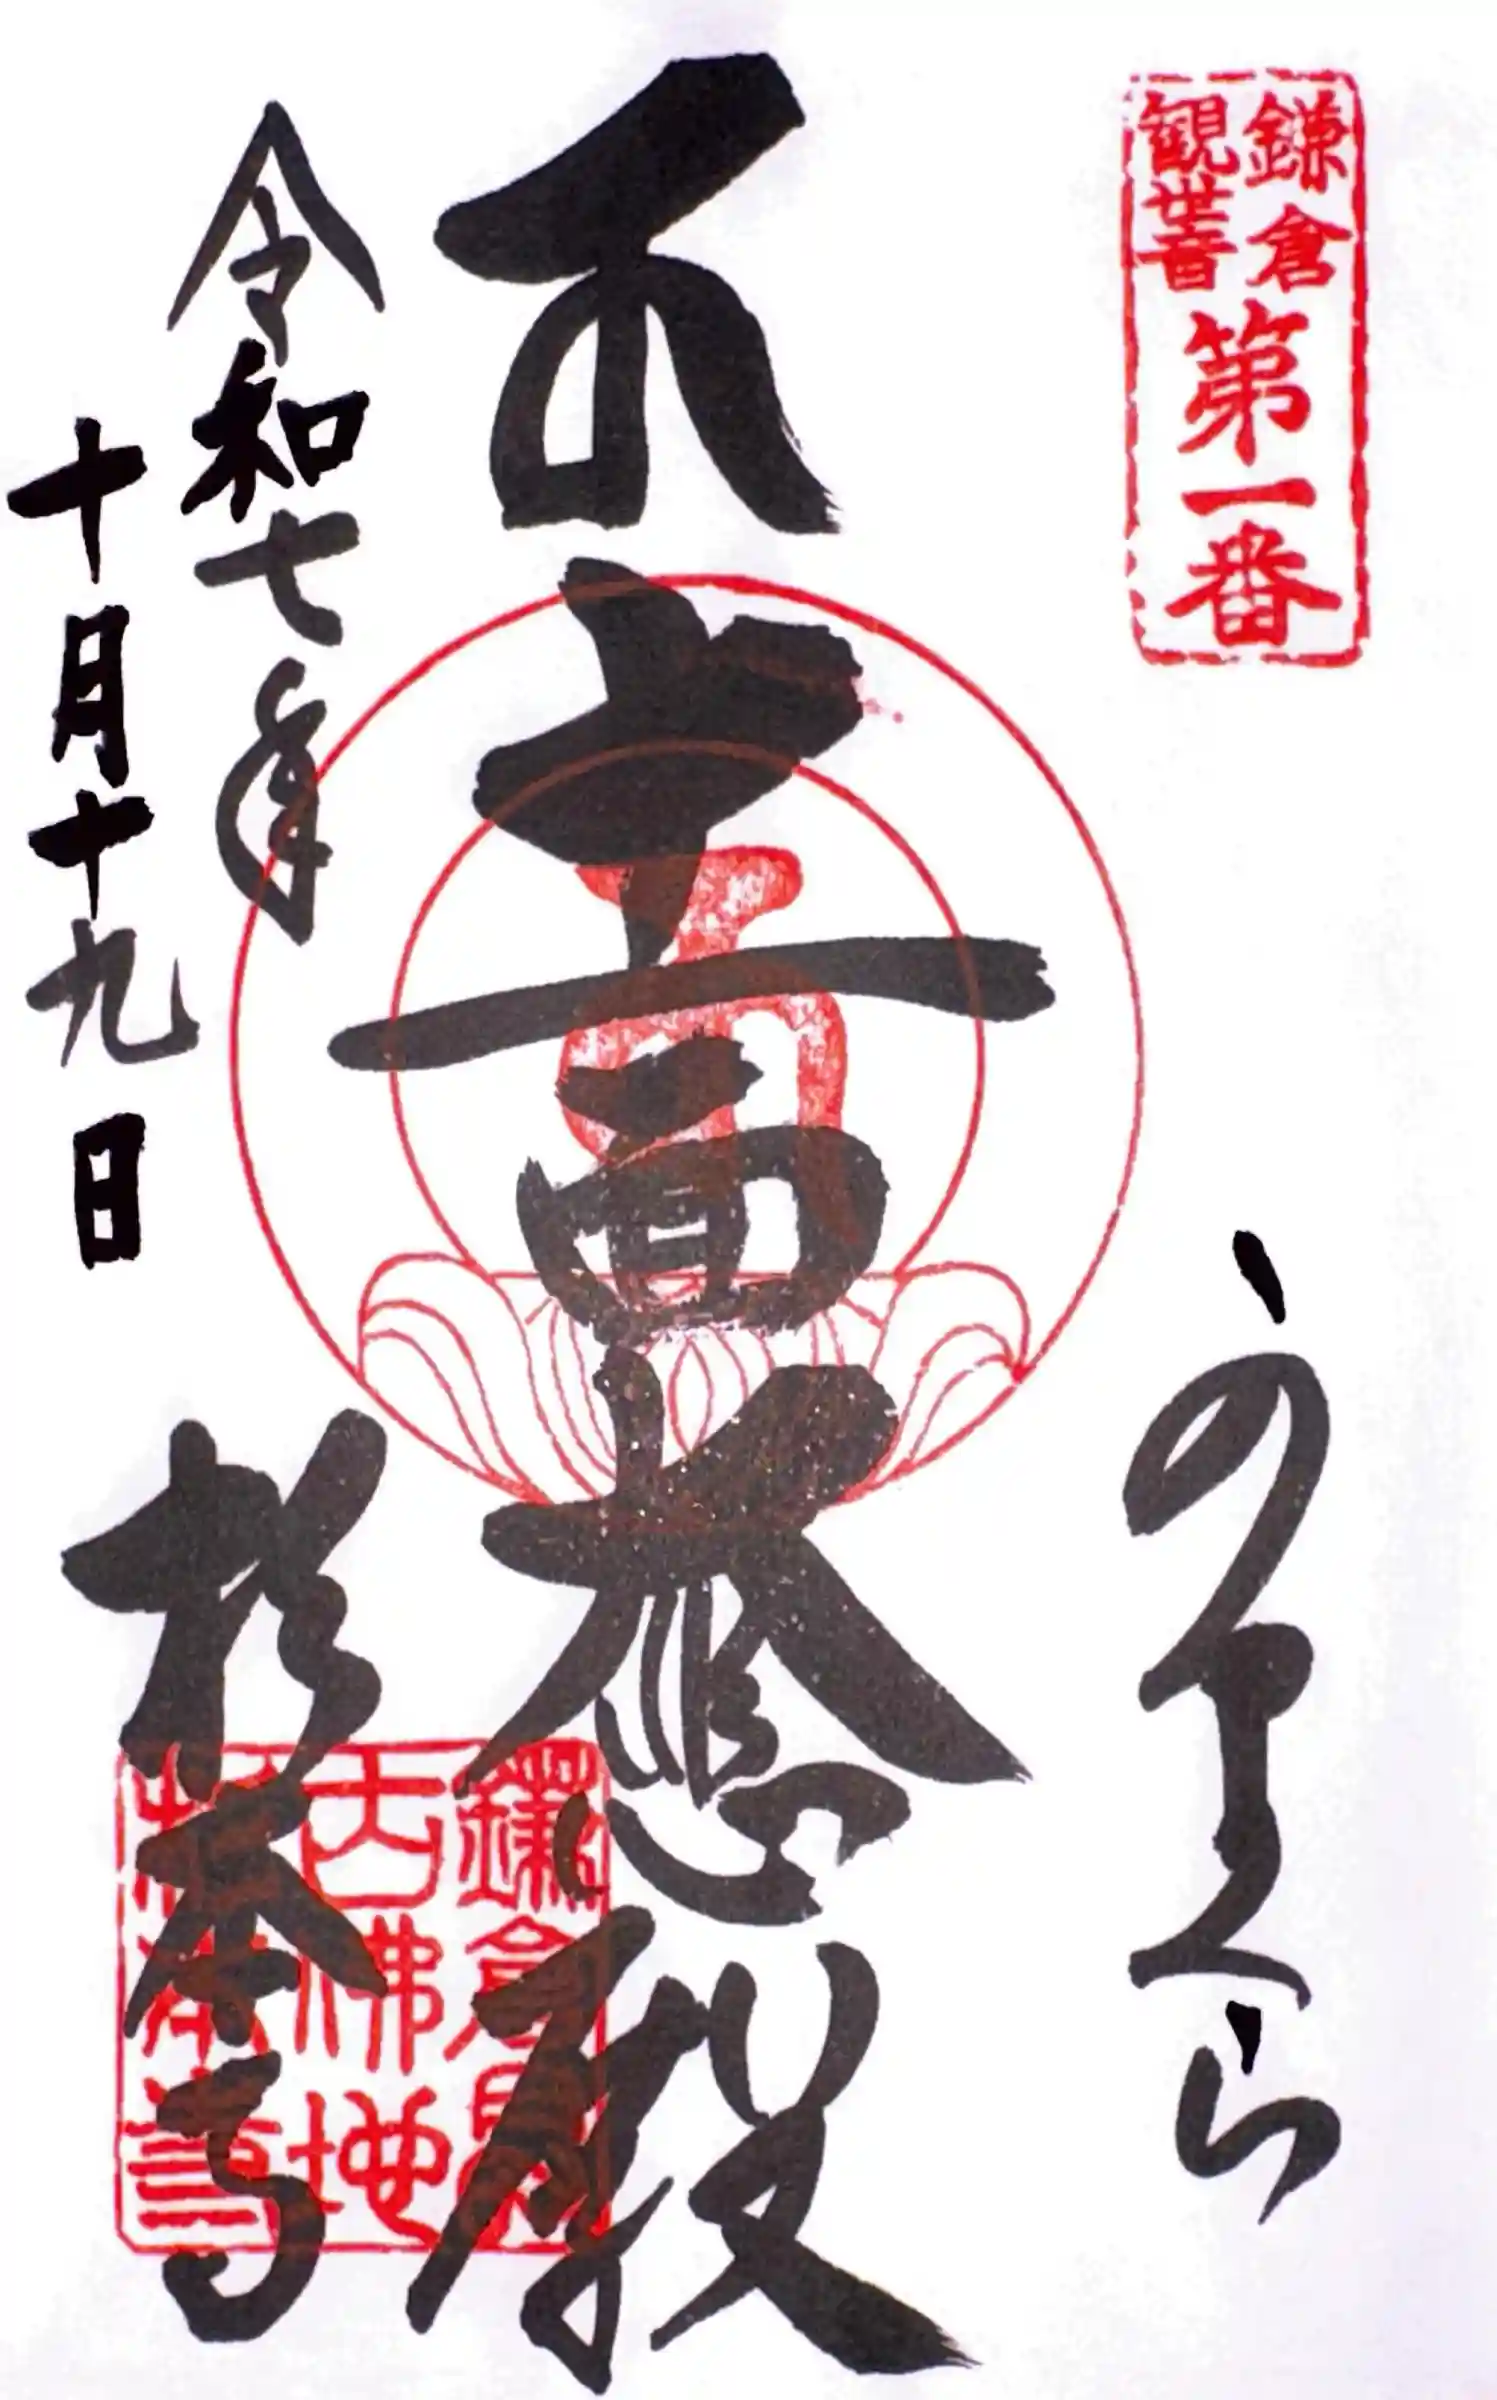 鎌倉
観世音
第一番
かまくら
十一面大悲殿
令和七年
十月十九日
杉本寺
鎌倉最
古佛地
杉本寺